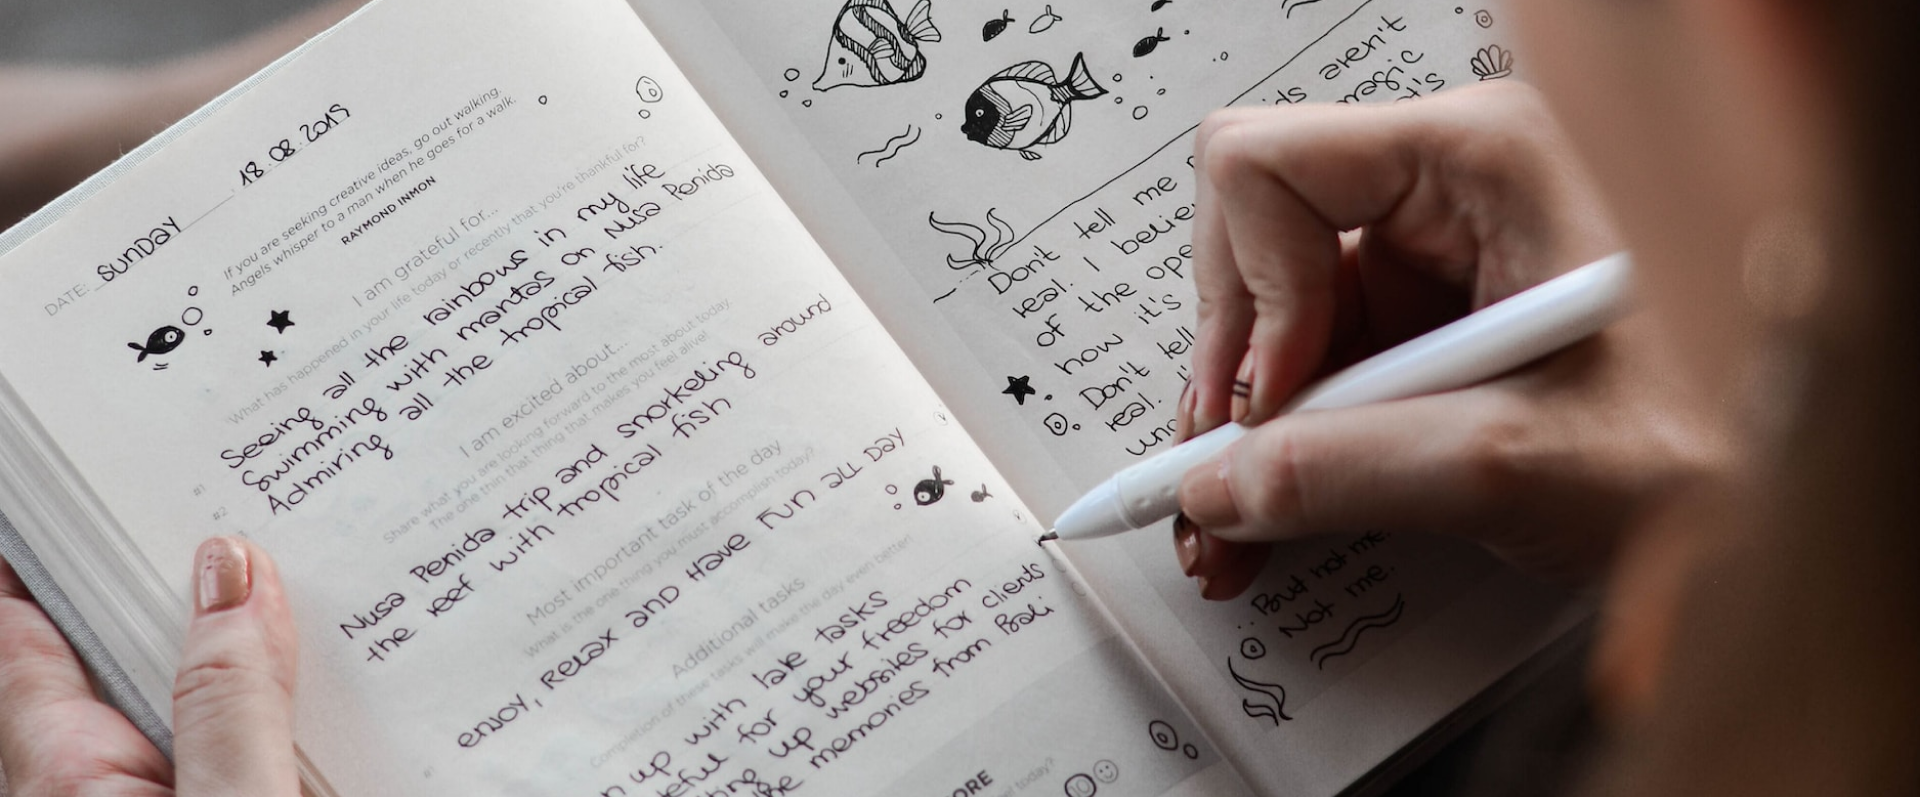 DATE: SUNDAY 18.08.2019
If you are seeking creative ideas, go out walking.
Angels whisper to a man when he goes for a walk.
RAYMOND INMON
I am grateful for...
What has happened in your life today or recently that you're thankful for?
#1 Seeing all the rainbows in my life
#2 Swimming with mantas on Nusa Penida
Admiring all the tropical fish.
I am excited about...
Share what you are looking forward to the most about today.
The one thing that makes you feel alive!
Nusa Penida trip and snorkeling around
the reef with tropical fish
Most important task of the day
What is the one thing you must accomplish today?
ENJOY, RELAX AND HAVE FUN ALL DAY
Additional tasks
Completion of these tasks will make the day even better!
#1
up with late tasks
for your freedom
up websites for clients
memories from Bali
today?
10
aren't
magic
Don't tell me
real. I
of the
how it's
Don't tell
real.
But not me.
Not me.